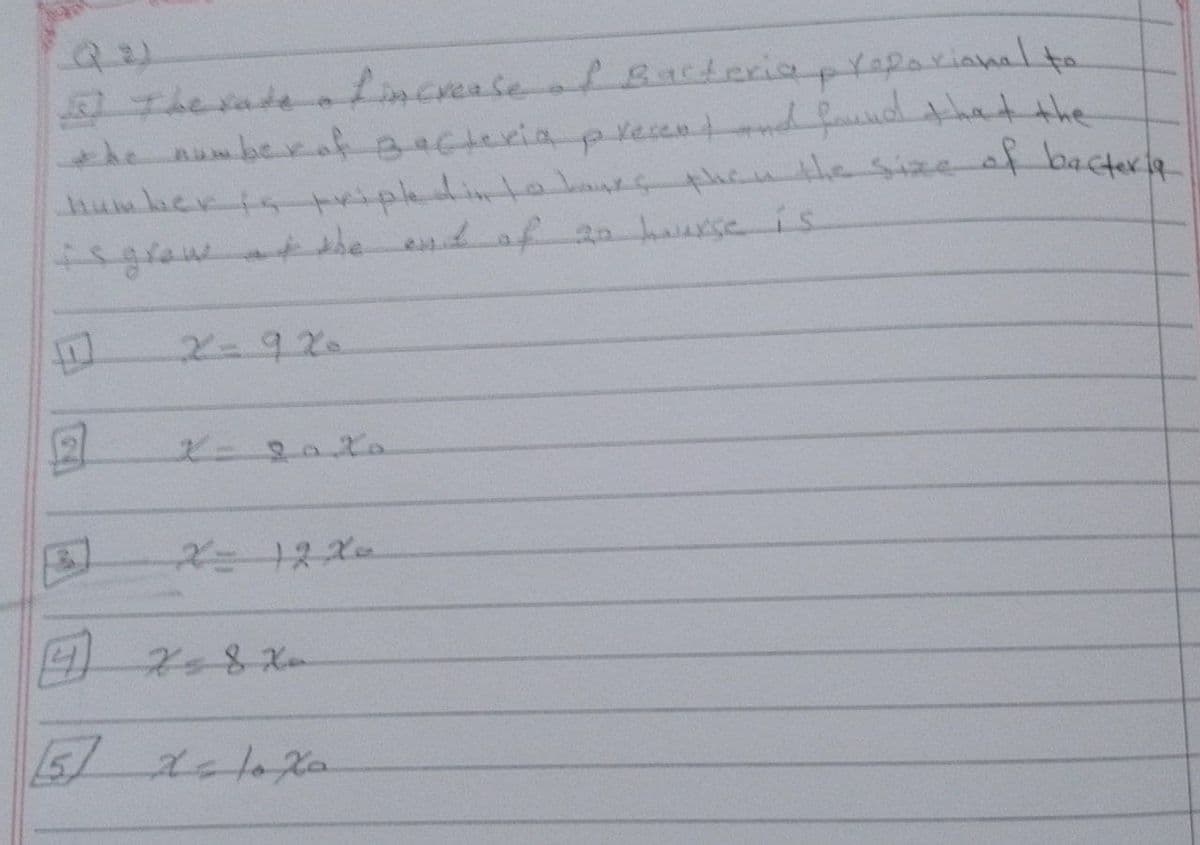 Q 2)
[5] The rate of increase of Bacteria proporional to
the number of Bacteria precent and found that the
number is tripled in 10 hours then the size of bacteria
is grow at the end of 20 hourse is
[1] x = 9 x0
[2] x = 20 x0
[3] x = 12 x0
[4] x = 8 x0
[5] x = 10 x0